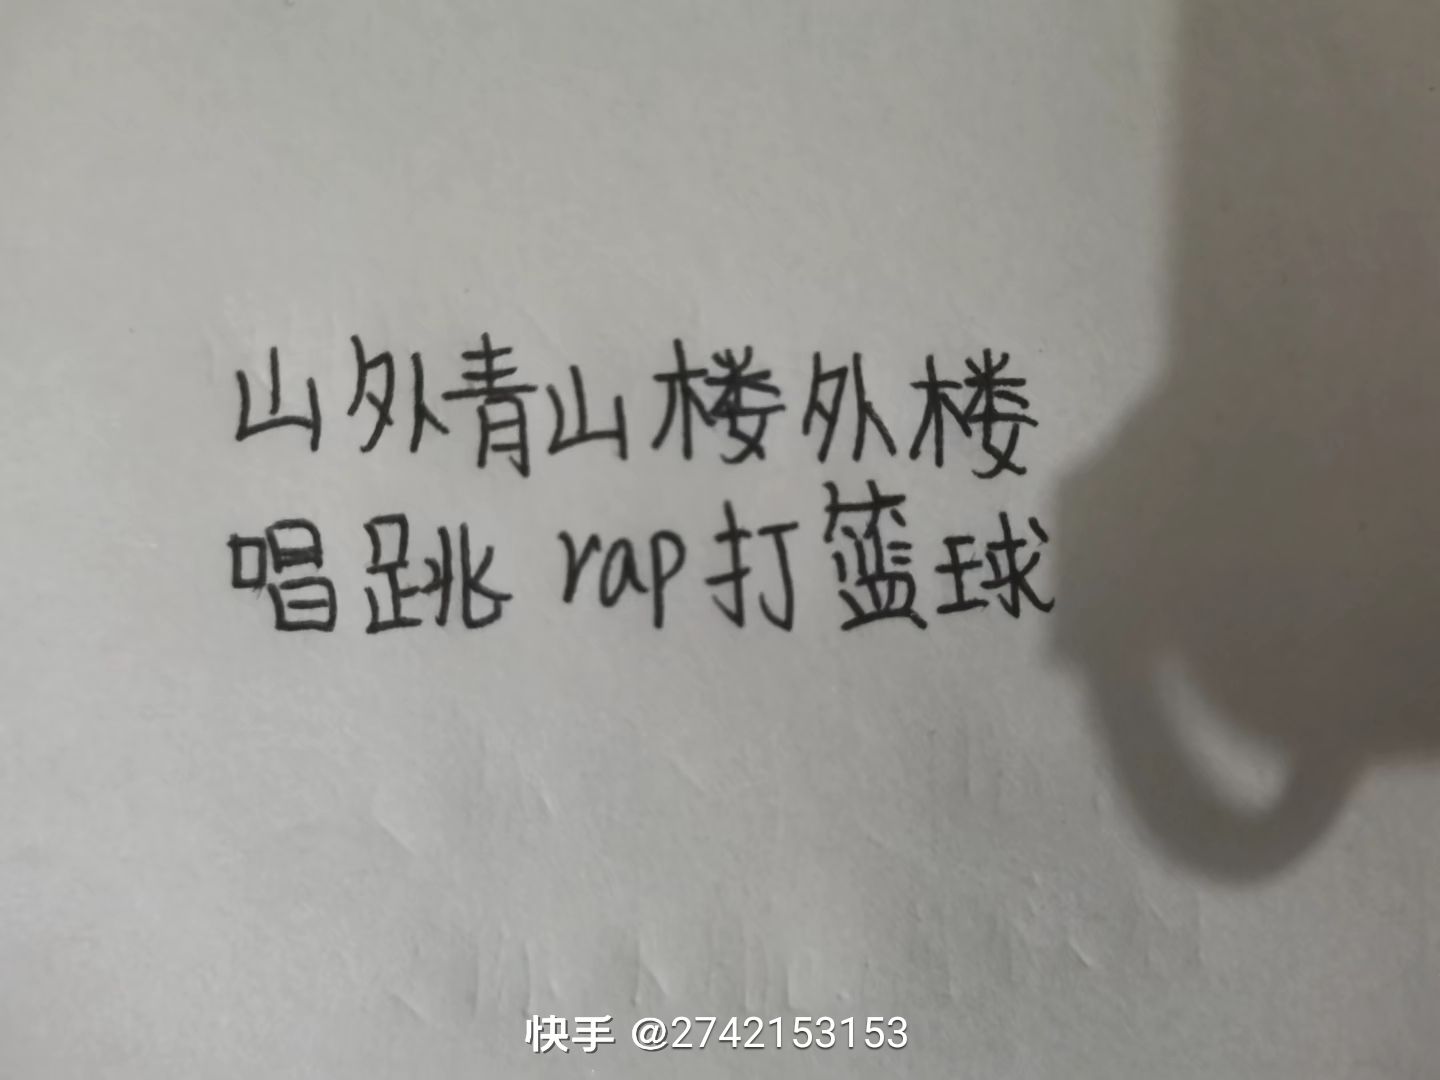 山外青山楼外楼
唱跳 rap打篮球
快手 @2742153153